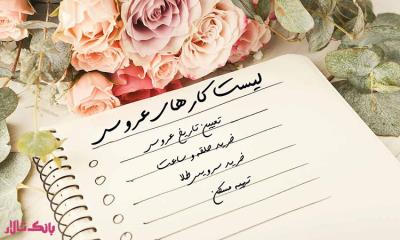 لیست کارهای عروسی
تعیین تاریخ عروسی
خرید حلقه و ساعت
خرید سرویس طلا
تهیه مسکن
بانک تالار